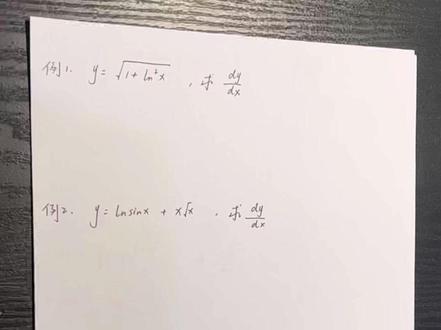 例1. y = √(1 + ln²x) , 求 dy/dx
例2. y = ln sinx + x√x , 求 dy/dx